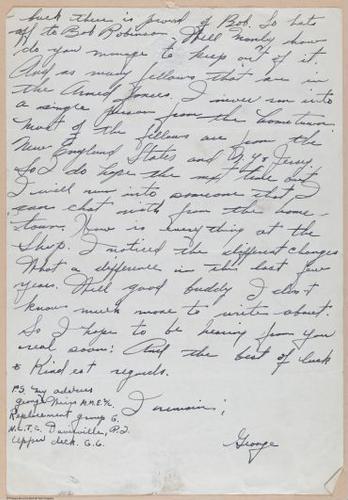 luck there is proud of Bob. So hats
off to Bob Robinson. Well Monty how
do you manage to keep out of it.
And as many fellows that are in
the Armed Forces. I never run into
a single person from the hometown.
Most of the fellows are from the
New England States and N.Y. & Jersey.
So I do hope the next time out I
I will run into someone that I
can chat with from the home-
town. How is everything at the
Shop. I noticed the different changes
What a difference in the last few
years. Well good buddy I don't
know much more to write about.
So I hope to be hearing from you
real soon: And the best of luck
& Kindest regards.
P.S. my address
George M.M.2/c
Replacement group G.
N.C.T.C. Davisville, R.I.
Upper deck. G.6.
I remain;
George